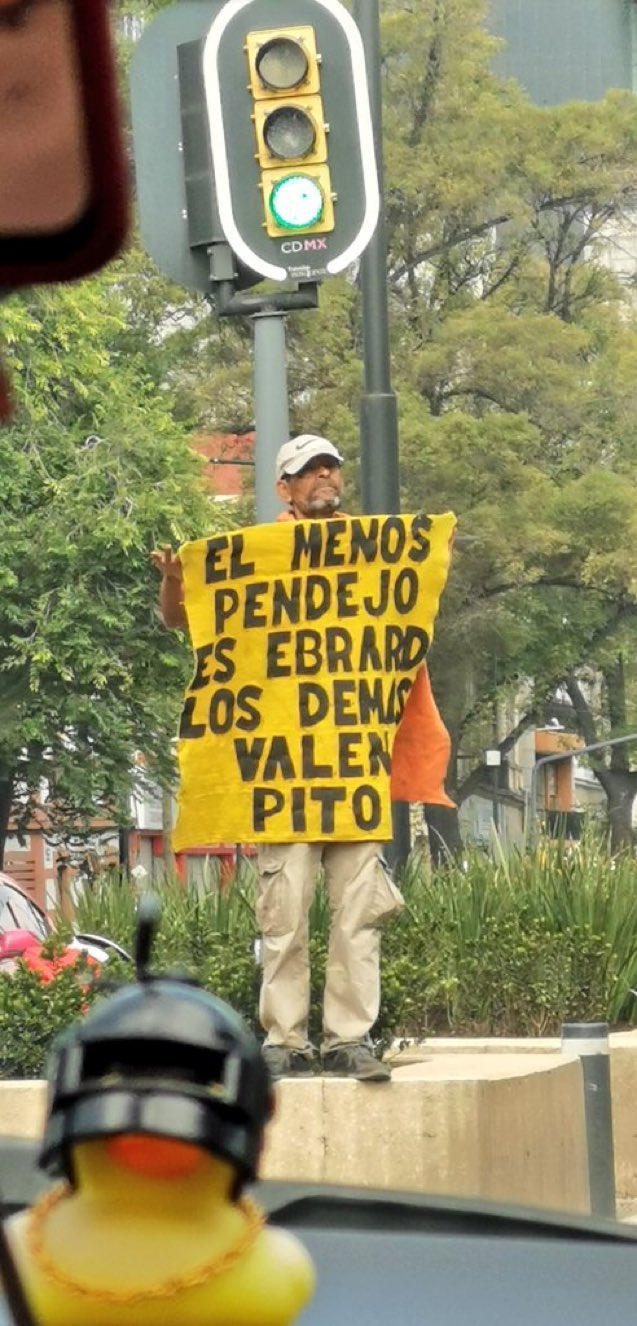 CDMX
EL MENOS
PENDEJO
ES EBRARD
LOS DEMAS
VALEN
PITO